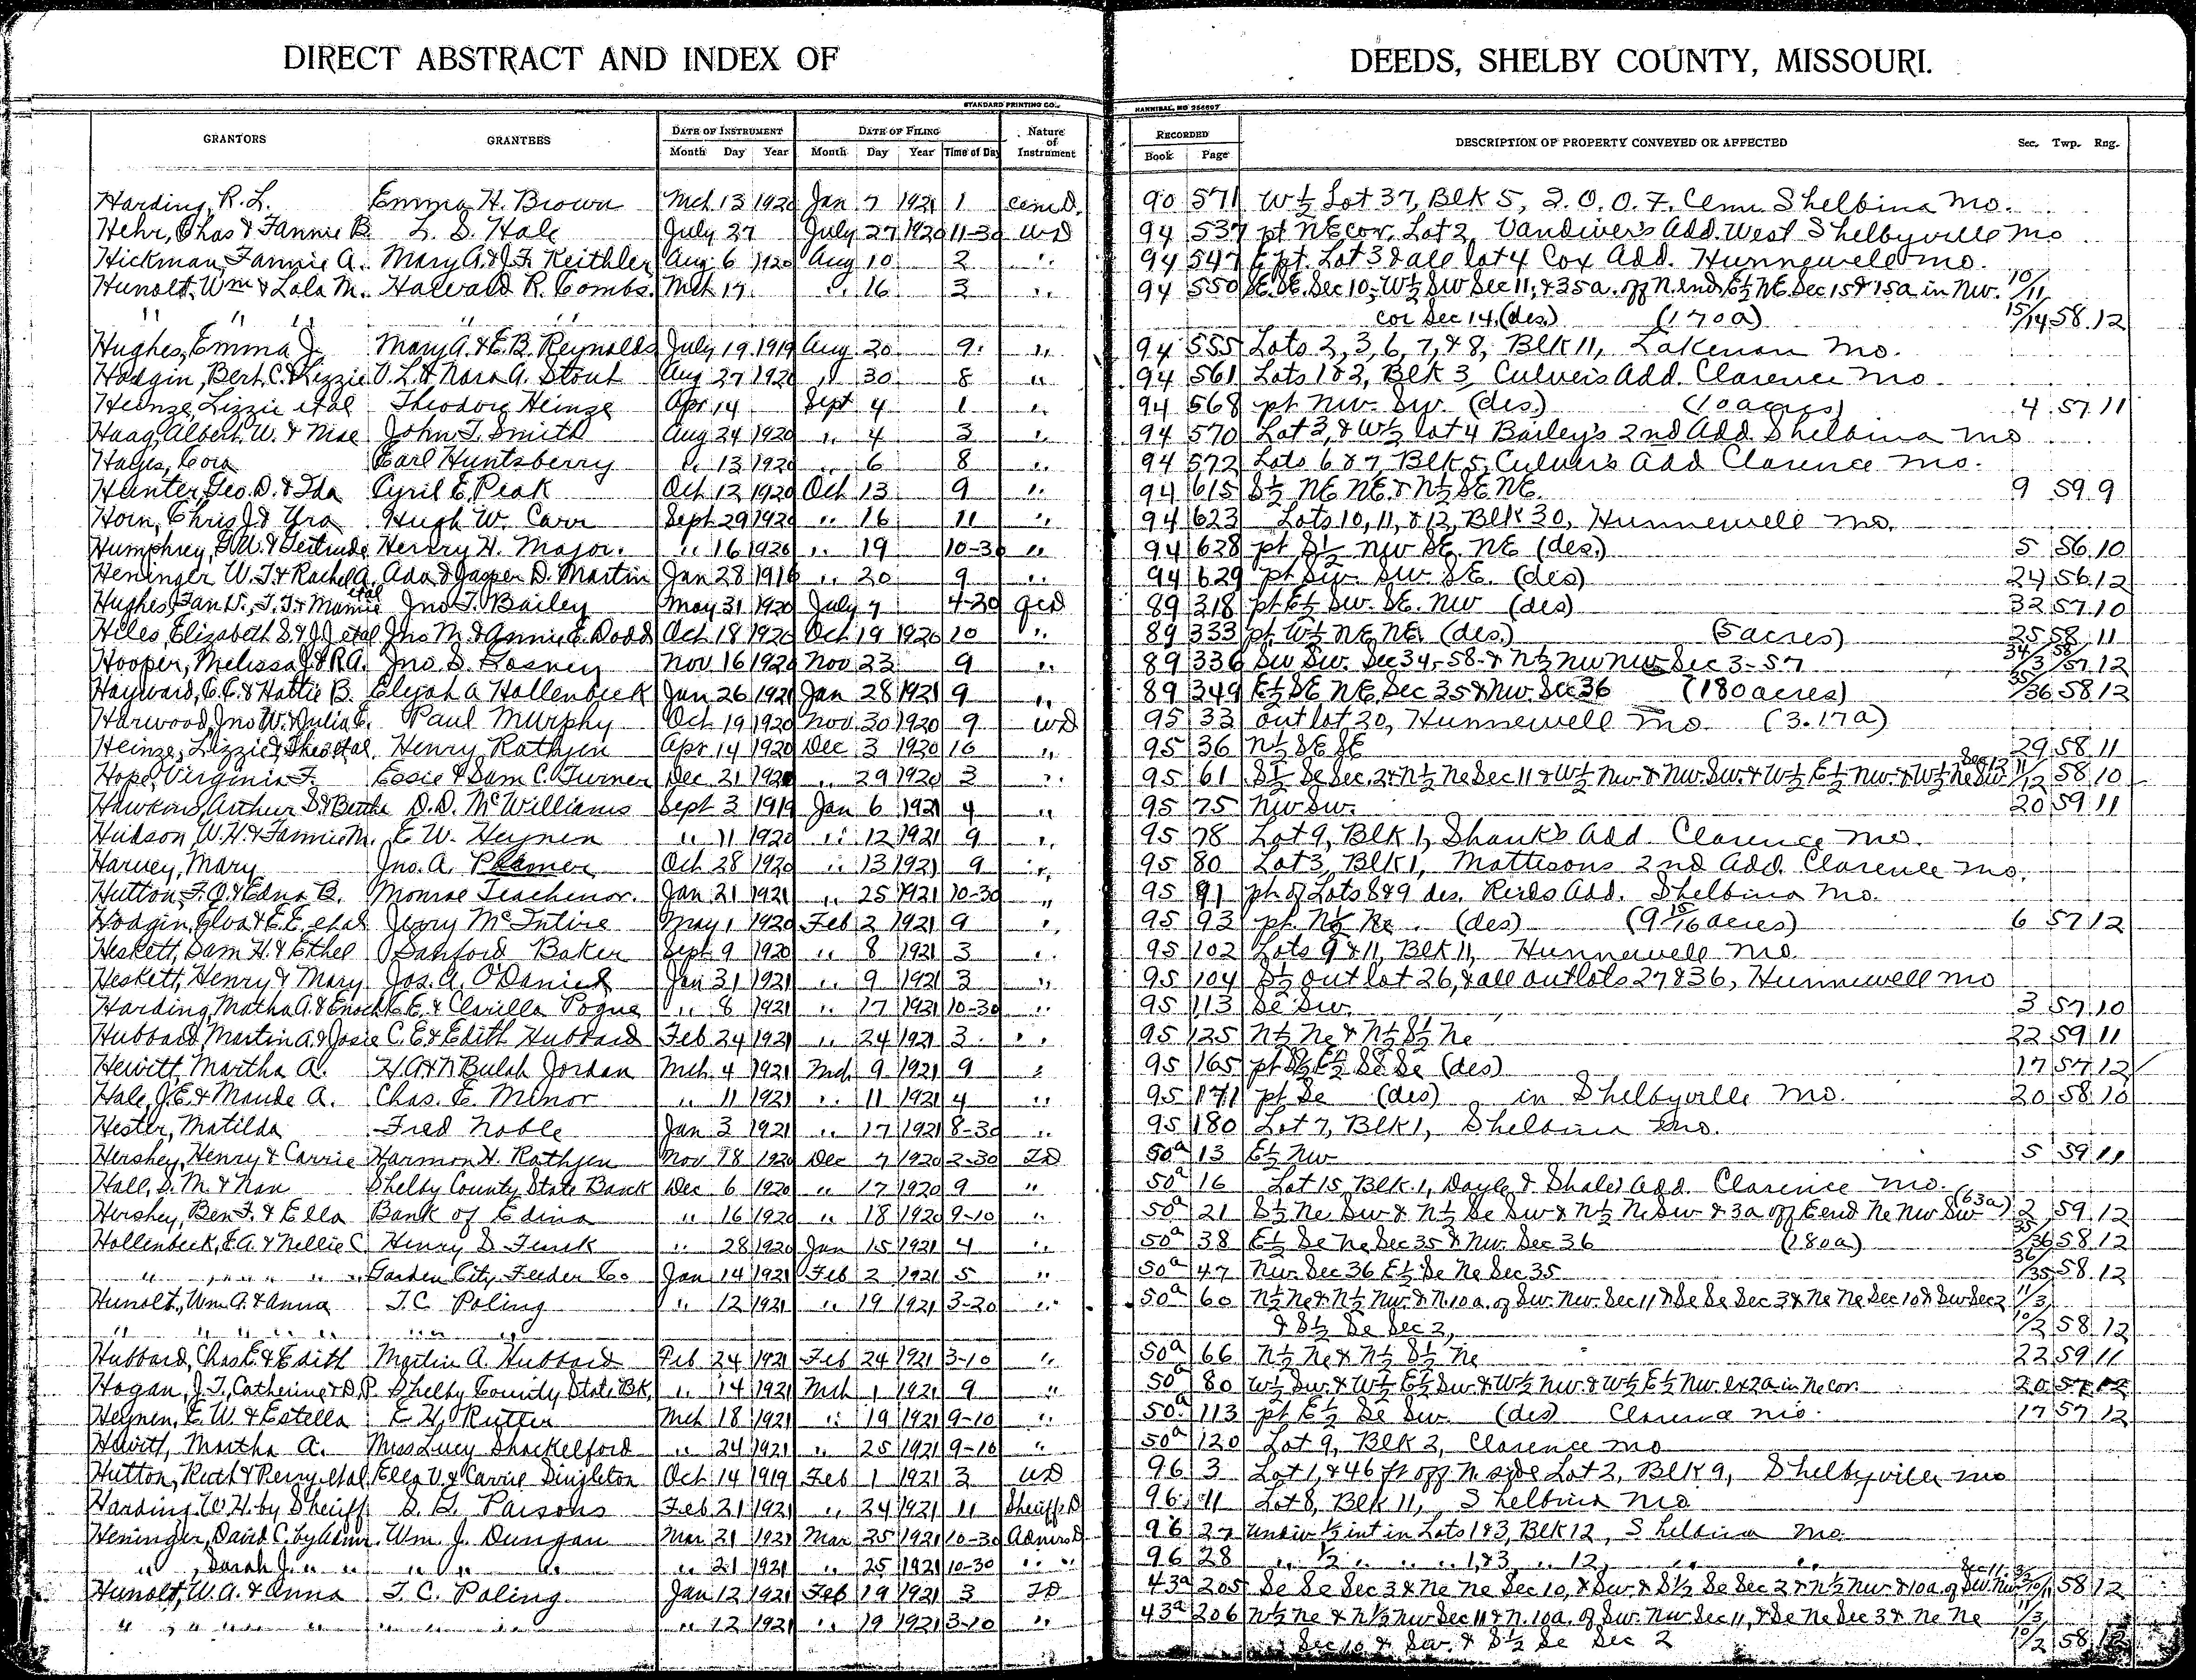 DIRECT ABSTRACT AND INDEX OF DEEDS, SHELBY COUNTY, MISSOURI.
STANDARD PRINTING CO., HANNIBAL, MO
GRANTORS GRANTEES DATE OF INSTRUMENT DATE OF FILING Nature of Instrument RECORDED DESCRIPTION OF PROPERTY CONVEYED OR AFFECTED Sec. Twp. Rng.
Month Day Year Month Day Year Time of Day Book Page
Harding, R. L. Emma H. Brown Mch 13 1920 Jan 7 1921 1 Cem D. 90 571 W½ Lot 37, Blk 5, I. O. O. F. Cem. Shelbina Mo.
Hehr, Chas & Fannie B. L. D. Hale July 27 July 27 1920 11-30 WD 94 537 pt NE cor. Lot 2 Vandiver's Add. West Shelbyville Mo
Hickman, Fannie A. Mary A. & J. F. Keithler Aug 6 1920 Aug 10 2 " 94 547 E pt. Lot 3 & all lot 4 Cox Add. Hunnewell Mo.
Hunolt, Wm & Lola M. Harvard R. Combs Mch 17 " 16 3 " 94 550 SE. SE. Sec 10, W½ SW Sec 11, & 35a. off N. end E½ NE. Sec 15 & 15a in NW. 10/11
" " " " " cor Sec 14, (des.) (170a) 15/14 58 12
Hughes, Emma J. Mary A. & E. B. Reynolds July 19 1919 Aug 20 9 " 94 555 Lots 2, 3, 6, 7, & 8, Blk 11, Lakenan Mo.
Hodgin, Bert C. & Lizzie O. L. & Nora A. Stout Aug 27 1920 " 30 8 " 94 561 Lots 1 & 2, Blk 3 Culver's Add. Clarence Mo.
Heinze, Lizzie etal Theodore Heinze Apr 14 Sept 4 1 " 94 568 pt NW. SW. (des.) (10 acres) 4 57 11
Haag, Albert W. & Mae John T. Smith Aug 24 1920 " 4 3 " 94 570 Lot 3, & W½ lot 4 Bailey's 2nd Add. Shelbina Mo
Hayes, Cora Earl Huntsberry " 13 1920 " 6 8 " 94 572 Lots 6 & 7, Blk 5, Culver's Add Clarence Mo.
Hunter, Geo. D. & Ida Cyril E. Peak Oct 12 1920 Oct 13 9 " 94 615 S½ NE NE & N½ SE NE. 9 59 9
Horn, Chris J. & Yra Hugh W. Carr Sept 29 1920 " 16 11 " 94 623 Lots 10, 11, & 12, Blk 30, Hunnewell Mo.
Humphrey, G. W. & Gertrude Henry H. Major. " 16 1920 " 19 10-30 " 94 628 pt S½ NW SE. NE (des.) 5 56 10
Heninger W. T. & Rachel A. Ada & Jasper D. Martin Jan 28 1916 " 20 9 " 94 629 pt SW. SW. SE. (des) 24 56 12
Hughes, Fan D., T. J. & Mamie etal Jno. T. Bailey May 31 1920 July 7 4-20 QCD 89 318 pt E½ SW. SE. NW (des) 32 57 10
Hiles, Elizabeth S. & J. J. etal Jno M. & Annie E. Dodd Oct 18 1920 Oct 19 1920 10 " 89 333 pt. W½ NE NE. (des.) (5 acres) 25 58 11
Hooper, Melissa J. & R. A. Jno S. Nov 16 1920 Nov 23 9 " 89 336 SW SW. Sec 34-58 & N½ NW NW Sec 3-57 34/3 58/57 12
Hayward, C. C. & Hattie B. Elijah A Hollenbeck Jan 26 1921 Jan 28 1921 9 " 89 349 E½ SE NE, Sec 35 & NW. Sec 36 (180 acres) 35/36 58 12
Harwood, Jno W. & Julia E. Paul Murphy Oct 19 1920 Nov 30 1920 9 WD 95 33 out lot 20, Hunnewell Mo. (3.17a)
Heinze, Lizzie & Theo etal Henry Rathjen Apr 14 1920 Dec 3 1920 10 " 95 36 N½ SE SE 29 58 11
Hope, Virginia F. Essie & Sam C. Turner Dec 21 1920 " 29 1920 3 " 95 61 S½ Se Sec. 2 & N½ Ne Sec 11 & W½ Nw. & Nw. Sw. & W½ E½ Nw. & W½ Ne Sw Sec 12 11/12 58 10
Hawkins, Arthur S. & Bertha D. D. McWilliams Sept 3 1919 Jan 6 1921 4 " 95 75 NW SW. 20 59 11
Hudson, W. H. & Fannie M. E. W. Heynen " 11 1920 " 12 1921 9 " 95 78 Lot 9, Blk 1, Shank's Add. Clarence Mo.
Harvey, Mary Jno. A. Oct 28 1920 " 13 1921 9 " 95 80 Lot 3, Blk 1, Mattisons 2nd Add. Clarence Mo.
Hutton, F. O. & Edna B. Monroe Teachenor. Jan 21 1921 " 25 1921 10-30 " 95 91 pt of Lots 8 & 9 des. Reids Add. Shelbina Mo.
Hodgin, Elva & E. E. etal Jerry McIntire May 1 1920 Feb 2 1921 9 " 95 93 pt. N½ Ne. (des) (9 15/16 acres) 6 57 12
Heskett, Sam H. & Ethel Sanford Baker Sept 9 1920 " 8 1921 3 " 95 102 Lots 9 & 11, Blk 11, Hunnewell Mo.
Heskett, Henry & Mary Jos. A. O'Daniel Jan 31 1921 " 9 1921 3 " 95 104 S½ out lot 26, & all outlots 27 & 36, Hunnewell Mo
Harding, Martha A. & Enoch C. E. & Clarilla Pogue " 8 1921 " 17 1921 10-30 " 95 113 Se Sw. 3 57 10
Hubbard, Martin A. & Josie C. E. & Edith Hubbard Feb 24 1921 " 24 1921 3 " 95 125 N½ Ne & N½ S½ Ne 22 59 11
Hewitt, Martha A. H. A. & N Bulah Jordan Mch 4 1921 Mch 9 1921 9 " 95 165 pt S½ E½ Se Se (des) 17 57 12
Hale, J. E. & Maude A. Chas. E. Minor " 11 1921 " 11 1921 4 " 95 171 pt Se (des) in Shelbyville Mo. 20 58 10
Hester, Matilda Fred Noble Jan 3 1921 " 17 1921 8-30 " 95 180 Lot 7, Blk 1, Shelbina Mo.
Hershey, Henry & Carrie Harmon H. Rathjen Nov 18 1920 Dec 7 1920 2-30 TD 50a 13 E½ Nw 5 59 11
Hall, S. M. & Nan Shelby County State Bank Dec 6 1920 " 17 1920 9 " 50a 16 Lot 15, Blk. 1, Doyle & Shales Add. Clarence Mo.
Hershey, Ben F. & Ella Bank of Edina " 16 1920 " 18 1920 9-10 " 50a 21 S½ Ne Sw & N½ Se Sw & N½ Ne Sw & 3a off E end Ne Nw Sw (63a) 2 59 12
Hollenbeck, E. A. & Nellie C. Henry S. Funk " 28 1920 Jan 15 1921 4 " 50a 38 E½ Se Ne Sec 35 & Nw. Sec 36 (180a) 35/36 58 12
" " " " " Garden City Feeder Co Jan 14 1921 Feb 2 1921 5 " 50a 47 Nw. Sec 36 E½ Se Ne Sec 35 36/35 58 12
Hunolt, Wm. A. & Anna T. C. Poling " 12 1921 " 19 1921 3-20 " 50a 60 N½ Ne & N½ Nw. & N. 10a. of Sw. Nw. Sec 11 & Se Se Sec 3 & Ne Ne Sec 10 & Sw Sec 2 11/3
" " " " " " & S½ Se Sec 2, 10/2 58 12
Hubbard, Chas E. & Edith Martin A. Hubbard Feb 24 1921 Feb 24 1921 3-10 " 50a 66 N½ Ne & N½ S½ Ne 22 59 11
Hogan, J. T., Catherine & D. P. Shelby County State Bk. " 14 1921 Mch 1 1921 9 " 50a 80 W½ Sw. & W½ E½ Sw & W½ Nw. & W½ E½ Nw. ex 2a in Ne cor. 20 57 12
Heynen, E. W. & Estella E. H. Rutter Mch 18 1921 " 19 1921 9-10 " 50a 113 pt E½ Se Sw. (des) Clarence Mo. 17 57 12
Hewitt, Martha A. Miss Lucy Shackelford " 24 1921 " 25 1921 9-10 " 50a 120 Lot 9, Blk 2, Clarence Mo
Hutton, Ruth & Perry etal Ella V. & Carrie Singleton Oct 14 1919 Feb 1 1921 3 WD 96 3 Lot 1, & 46 ft off N. side Lot 2, Blk 9, Shelbyville Mo
Harding, W. H. by Sheriff S. G. Parsons Feb 21 1921 " 24 1921 11 Sheriffs D 96 11 Lot 8, Blk 11, Shelbina Mo
Heninger, David C. by Admr. Wm. J. Dungan Mar 21 1921 Mar 25 1921 10-30 Admrs D 96 27 Undiv ½ int in Lots 1 & 3, Blk 12, Shelbina Mo.
" , Sarah J. " " " " " " 21 1921 " 25 1921 10-30 " " 96 28 " ½ " " " 1, & 3 " 12, " "
Hunolt, W. A. & Anna T. C. Poling Jan 12 1921 Feb 19 1921 3 TD 43a 205 Se Se Sec 3 & Ne Ne Sec 10, & Sw. & S½ Se Sec 2 & N½ Nw. & 10a. of Sw. Nw Sec 11 58 12
" " " " " " " 12 1921 " 19 1921 3-10 " 43a 206 N½ Ne & N½ Nw Sec 11 & N. 10a. of Sw. Nw Sec 11, & Se Ne Sec 3 & Ne Ne 11/3
Sec 10 & Sw. & S½ Se Sec 2 10/2 58 12